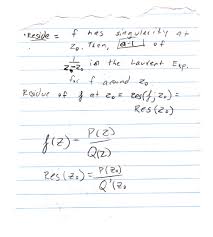 • Reside = f has singularity at
z₀. Then, a-1 of
1/(z-z₀) in the Laurent Exp.
for f around z₀
Residue of f at z₀ = res(f; z₀) =
Res(z₀)
f(z) = P(z)/Q(z)
Res(z₀) = P(z₀)/Q'(z₀